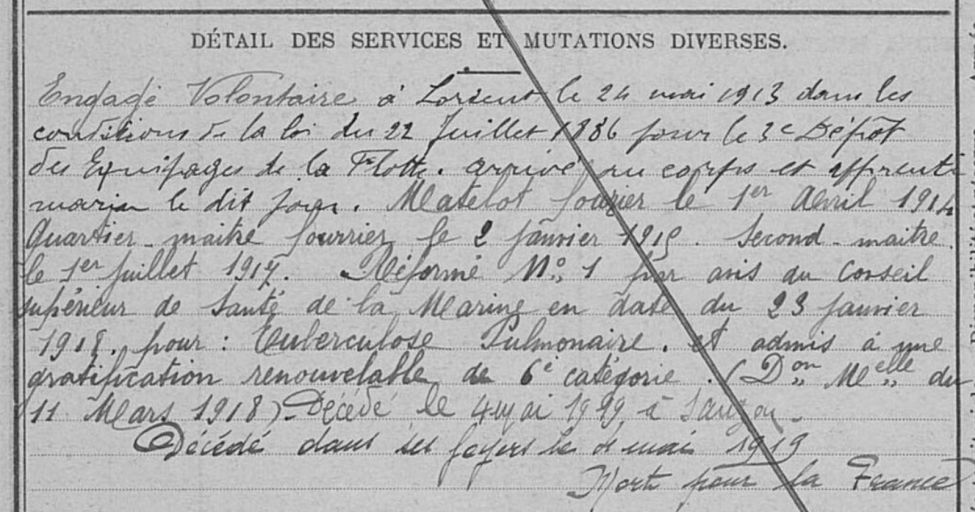 DÉTAIL DES SERVICES ET MUTATIONS DIVERSES.
Engagé Volontaire à Lorient le 24 mai 1913 dans les
conditions de la loi du 22 Juillet 1886 pour le 3e Dépôt
des Equipages de la Flotte. arrivé au corps et apprenti
marin le dit jour. Matelot fourrier le 1er Avril 1914
Quartier-maitre fourrier le 2 janvier 1915. Second-maitre
le 1er Juillet 1917. Réformé No 1 par avis du Conseil
supérieur de Santé de la Marine en date du 23 janvier
1918. pour : Tuberculose Pulmonaire. et admis à une
gratification renouvelable de 6e catégorie. (Don Melle du
11 Mars 1918). Décédé le 4 mai 1919 à Sauzon.
Décédé dans ses foyers le 4 mai 1919
Mort pour la France